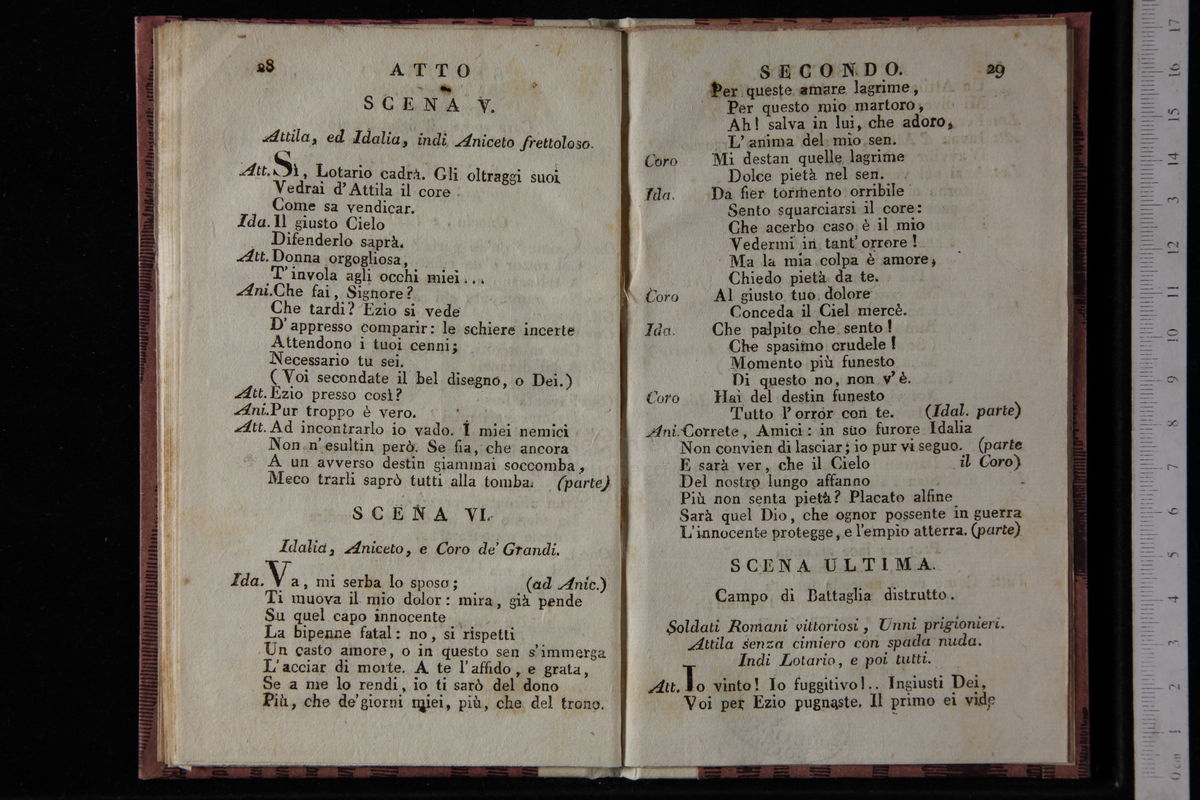 28
ATTO
SCENA V.
Attila, ed Idalia, indi Aniceto frettoloso.
Att. Sì, Lotario cadrà. Gli oltraggi suoi
Vedrai d'Attila il core
Come sa vendicar.
Ida. Il giusto Cielo
Difenderlo saprà.
Att. Donna orgogliosa,
T'invola agli occhi miei...
Ani. Che fai, Signore?
Che tardi? Ezio si vede
D'appresso comparir: le schiere incerte
Attendono i tuoi cenni;
Necessario tu sei.
(Voi secondate il bel disegno, o Dei.)
Att. Ezio presso così?
Ani. Pur troppo è vero.
Att. Ad incontrarlo io vado. I miei nemici
Non n'esultin però. Se fia, che ancora
A un avverso destin giammai soccomba,
Meco trarli saprò tutti alla tomba. (parte)
SCENA VI.
Idalia, Aniceto, e Coro de' Grandi.
Ida. Va, mi serba lo sposo; (ad Anic.)
Ti muova il mio dolor: mira, già pende
Su quel capo innocente
La bipenne fatal: no, si rispetti
Un casto amore, o in questo sen s'immerga
L'acciar di morte. A te l'affido, e grata,
Se a me lo rendi, io ti sarò del dono
Più, che de' giorni miei, più, che del trono.
SECONDO.
29
Per queste amare lagrime,
Per questo mio martoro,
Ah! salva in lui, che adoro,
L'anima del mio sen.
Coro Mi destan quelle lagrime
Dolce pietà nel sen.
Ida. Da fier tormento orribile
Sento squarciarsi il core:
Che acerbo caso è il mio
Vedermi in tant'orrore!
Ma la mia colpa è amore,
Chiedo pietà da te.
Coro Al giusto tuo dolore
Conceda il Ciel mercè.
Ida. Che palpito che sento!
Che spasimo crudele!
Momento più funesto
Di questo no, non v'è.
Coro Hai del destin funesto
Tutto l'orror con te. (Idal. parte)
Ani. Correte, Amici: in suo furore Idalia
Non convien di lasciar; io pur vi seguo. (parte
E sarà ver, che il Cielo il Coro)
Del nostro lungo affanno
Più non senta pietà? Placato alfine
Sarà quel Dio, che ognor possente in guerra
L'innocente protegge, e l'empio atterra. (parte)
SCENA ULTIMA.
Campo di Battaglia distrutto.
Soldati Romani vittoriosi, Unni prigionieri.
Attila senza cimiero con spada nuda.
Indi Lotario, e poi tutti.
Att. Io vinto! Io fuggitivo!.. Ingiusti Dei,
Voi per Ezio pugnaste. Il primo ei vide
17
16
15
14
13
12
11
10
9
8
7
6
5
4
3
2
1
0 cm